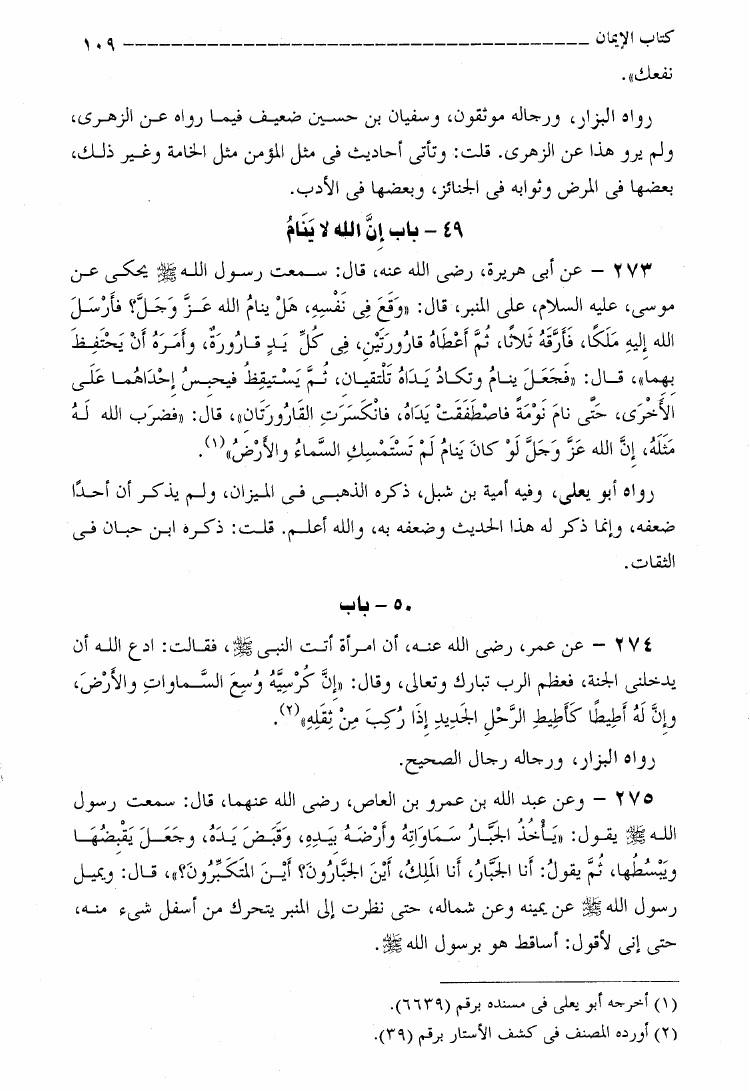 كتاب الإيمان ـــــــــــــــــــــــــــــــــــــــ ١٠٩
نفعك».
رواه البزار، ورجاله موثقون، وسفيان بن حسين ضعيف فيما رواه عن الزهرى،
ولم يرو هذا عن الزهرى. قلت: وتأتى أحاديث فى مثل المؤمن مثل الخامة وغير ذلك،
بعضها فى المرض وثوابه فى الجنائز، وبعضها فى الأدب.
٤٩ - باب إنَّ الله لا يَنَامُ
٢٧٣ - عن أبى هريرة، رضى الله عنه، قال: سمعت رسول الله ﷺ يحكى عن
موسى، عليه السلام، على المنبر، قال: «وَقَعَ فِى نَفْسِهِ، هَلْ ينامُ الله عَزَّ وَجَلَّ؟ فأَرْسَلَ
الله إليهِ مَلَكًا، فَأَرَّقَهُ ثَلاثًا، ثُمَّ أَعْطَاهُ قارُورَتَيْنِ، فِى كُلِّ يَدٍ قارُورةٌ، وأمَرَهُ أنْ يَحْتَفِظَ
بِهِما»، قال: «فَجَعَلَ ينامُ وتكادُ يَدَاهُ تَلْتقِيانِ، ثُمَّ يَسْتيقِظُ فيحبِسُ إحْدَاهُما عَلَى
الأُخْرَى، حَتَّى نامَ نَوْمَةً فاصْطَفَقَتْ يَدَاهُ، فانْكَسَرَتِ القَارُورَتَان»، قال: «فضَرَب الله لَهُ
مَثَلَهُ، إنَّ الله عَزَّ وَجَلَّ لَوْ كانَ يَنامُ لَمْ تَسْتَمْسِكِ السَّماءُ والأَرْضُ»(١).
رواه أبو يعلى، وفيه أمية بن شبل، ذكره الذهبى فى الميزان، ولم يذكر أن أحدًا
ضعفه، وإنما ذكر له هذا الحديث وضعفه به، والله أعلم. قلت: ذكره ابن حبان فى
الثقات.
٥٠ - باب
٢٧٤ - عن عمر، رضى الله عنه، أن امرأة أتت النبى ﷺ، فقالت: ادع الله أن
يدخلنى الجنة، فعظم الرب تبارك وتعالى، وقال: «إنَّ كُرْسِيَّهُ وُسِعَ السَّماوات والأَرْضَ،
وإنَّ لَهُ أَطِيطًا كَأَطِيطِ الرَّحْلِ الجَدِيدِ إذَا رُكِبَ مِنْ ثِقَلِهِ»(٢).
رواه البزار، ورجاله رجال الصحيح.
٢٧٥ - وعن عبد الله بن عمرو بن العاص، رضى الله عنهما، قال: سمعت رسول
الله ﷺ يقول: «يَأْخُذُ الجَبَّارُ سَماوَاتِهُ وأَرْضَهُ بِيَدِهِ، وقَبَضَ يَدَهُ، وجَعَلَ يَقْبِضُهَا
ويَبْسُطُها، ثُمَّ يقولُ: أنا الجَبَّارُ، أنا المَلِكُ، أيْنَ الجَبَّارُونَ؟ أيْنَ المَتَكَبِّرُونَ؟»، قال: ويميل
رسول الله ﷺ عن يمينه وعن شماله، حتى نظرت إلى المنبر يتحرك من أسفل شىء منه،
حتى إنى لأقول: أساقط هو برسول الله ﷺ.
(١) أخرجه أبو يعلى فى مسنده برقم (٦٦٣٩).
(٢) أورده المصنف فى كشف الأستار برقم (٣٩).